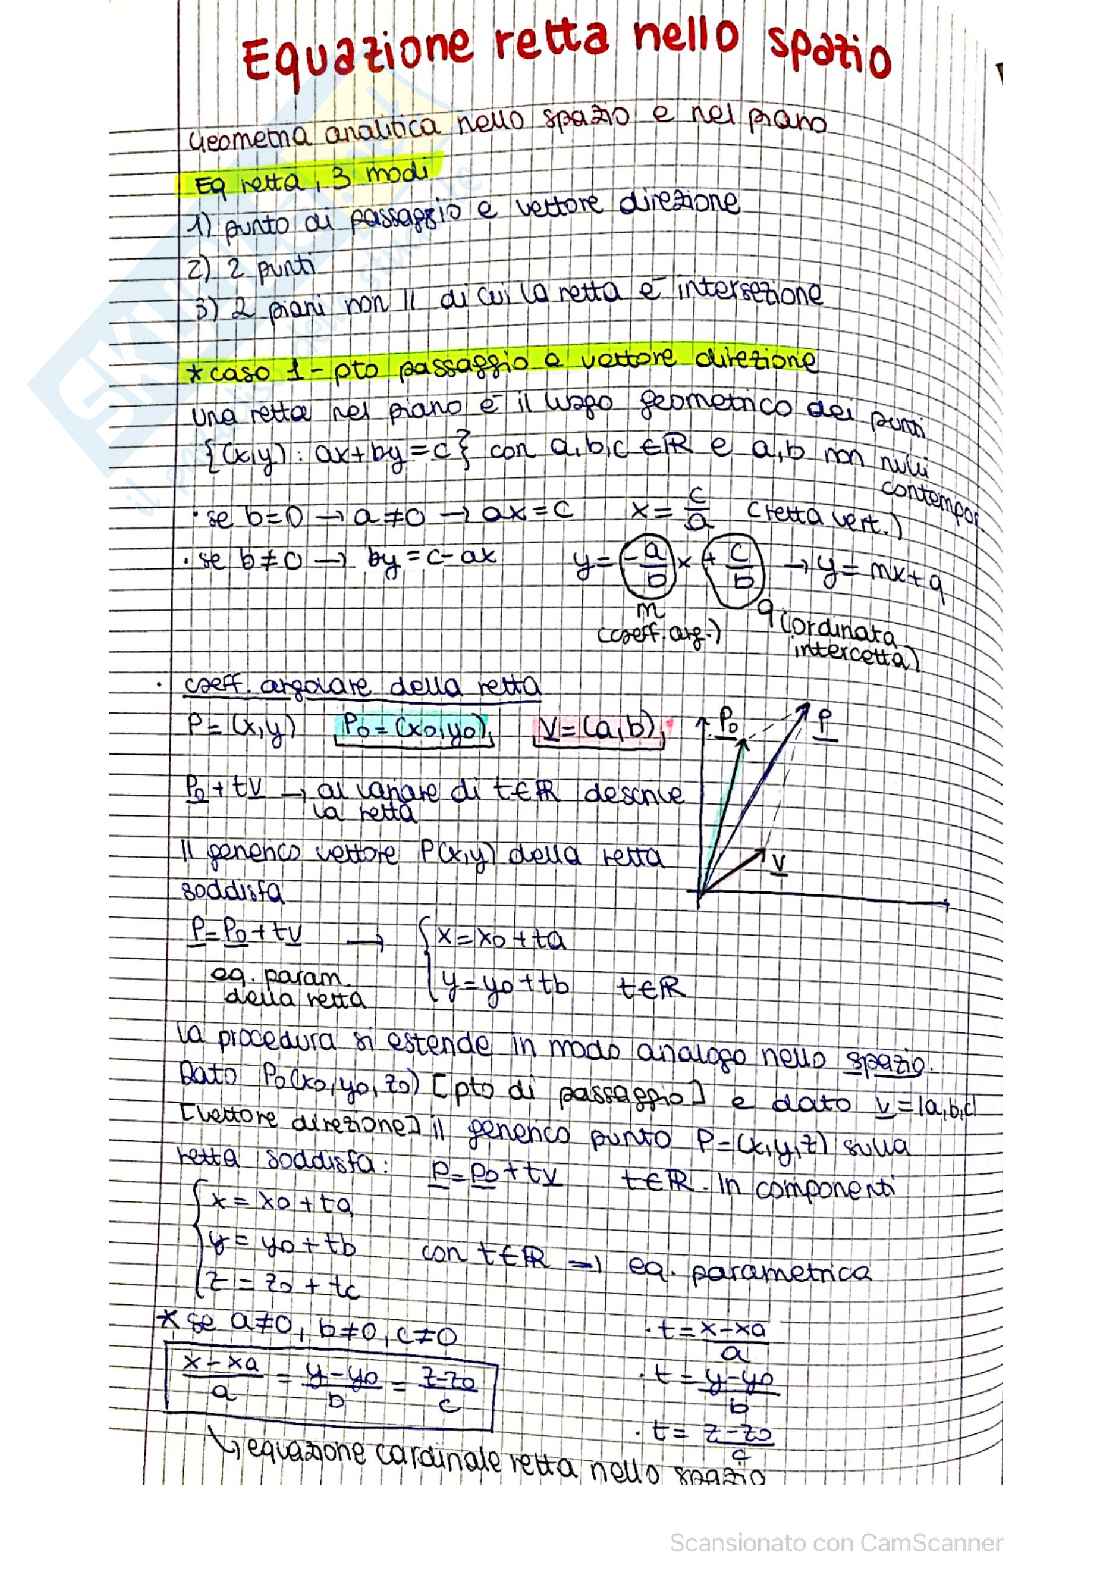 Equazione retta nello spazio
Geometria analitica nello spazio e nel piano
Eq retta, 3 modi
1) punto di passaggio e vettore direzione
2) 2 punti
3) 2 piani non || di cui la retta è intersezione
* caso 1 - pto passaggio e vettore direzione
una retta nel piano è il luogo geometrico dei punti
{(x,y) : ax+by=c} con a,b,c ∈ ℝ e a,b non nulli
contempor
· se b=0 → a≠0 → ax=c x = c/a (retta vert.)
· se b≠0 → by=c-ax y = (-a/b)x + (c/b) → y=mx+q
m q (ordinata
(coeff. arg.) intercetta)
· coeff. argolare della retta
P=(x,y) P0=(x0,y0), V=(a,b),
P0 P
P0+tV → al variare di t∈ℝ descrive
la retta
Il generico vettore P(x,y) della retta
V
soddisfa
P=P0+tV → { x=x0+ta
eq. param. { y=y0+tb t∈ℝ
della retta
la procedura si estende in modo analogo nello spazio.
Dato P0(x0,y0,z0) [pto di passaggio] e dato v=(a,b,c)
[vettore direzione] il generico punto P=(x,y,z) sulla
retta soddisfa: P=P0+tV t∈ℝ. In componenti
{ x=x0+ta
{ y=y0+tb con t∈ℝ → eq. parametrica
{ z=z0+tc
* se a≠0, b≠0, c≠0 · t = x-xa/a
x-xa/a = y-y0/b = z-z0/c · t = y-y0/b
· t = z-z0/c
↳ equazione cardinale retta nello spazio
Scansionato con CamScanner